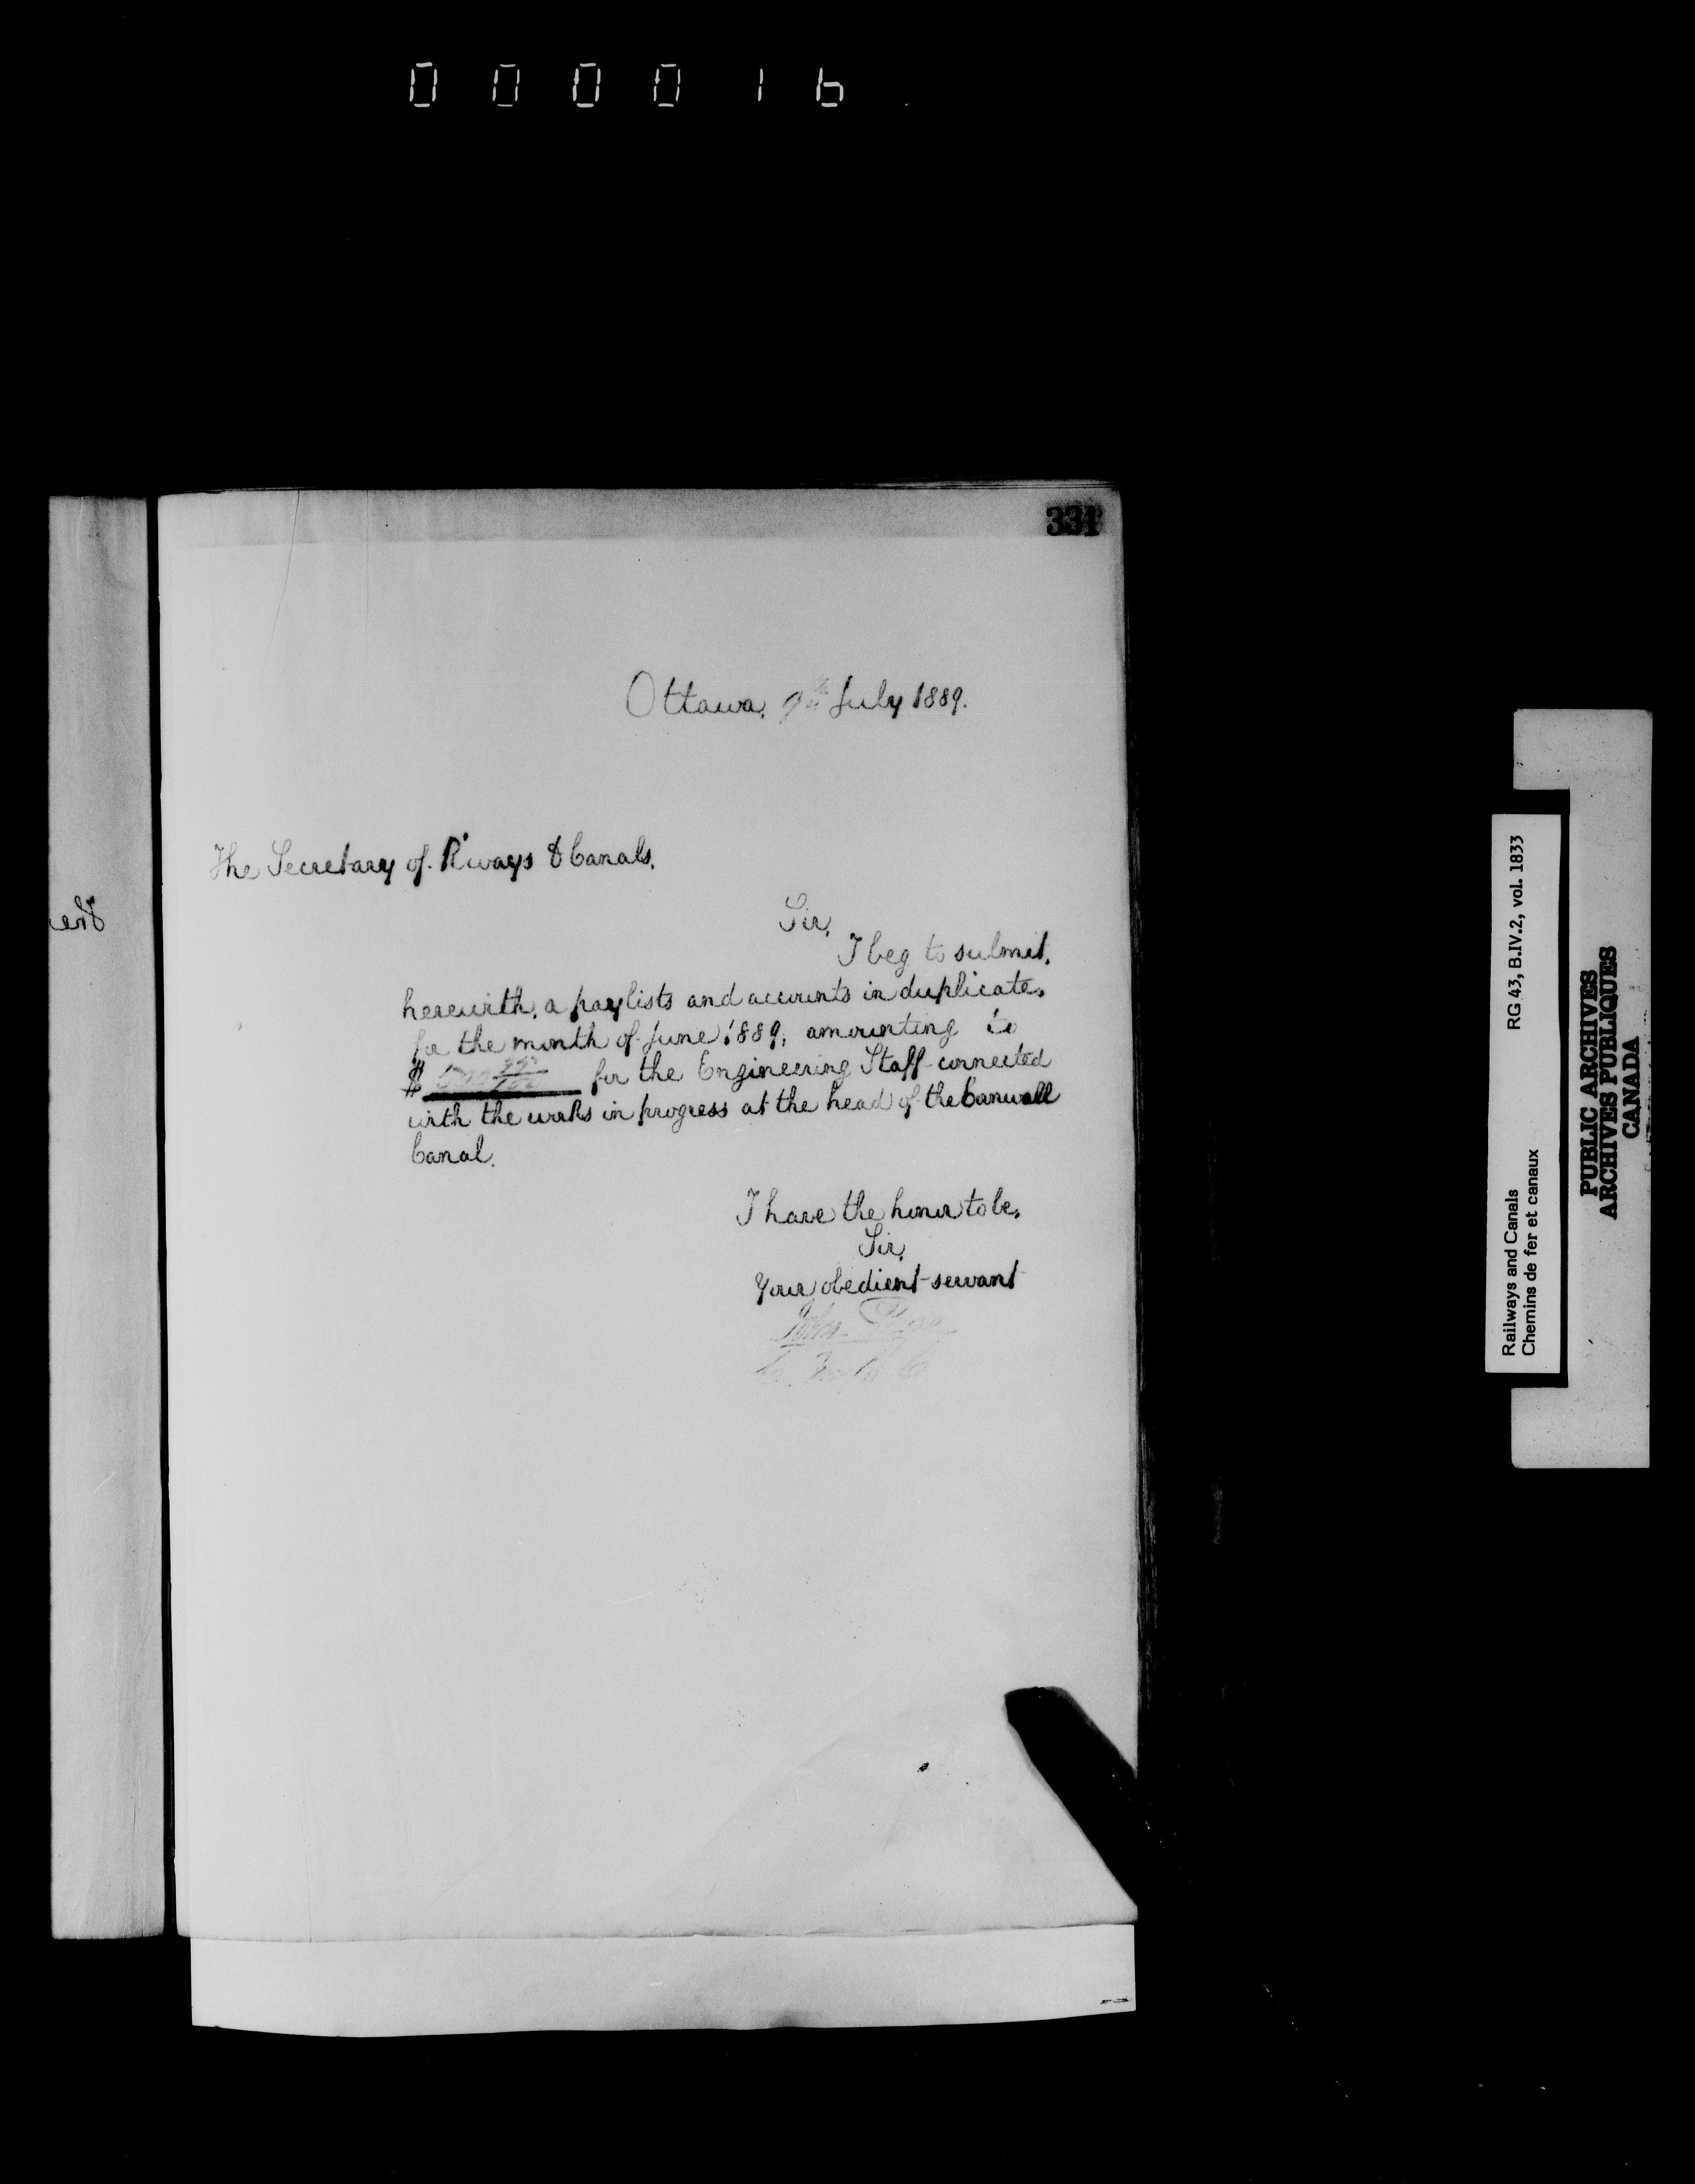 000016
331
Ottawa, 9th July 1889.
The Secretary of R'ways & Canals.
Sir,
I beg to submit,
herewith, a paylists and accounts in duplicate,
for the month of June 1889, amounting to
$ for the Engineering Staff connected
with the works in progress at the head of the Cornwall
Canal.
I have the honor to be,
Sir,
Your obedient servant
John Page
The
Railways and Canals RG 43, B.IV.2, vol. 1833
Chemins de fer et canaux
PUBLIC ARCHIVES
ARCHIVES PUBLIQUES
CANADA